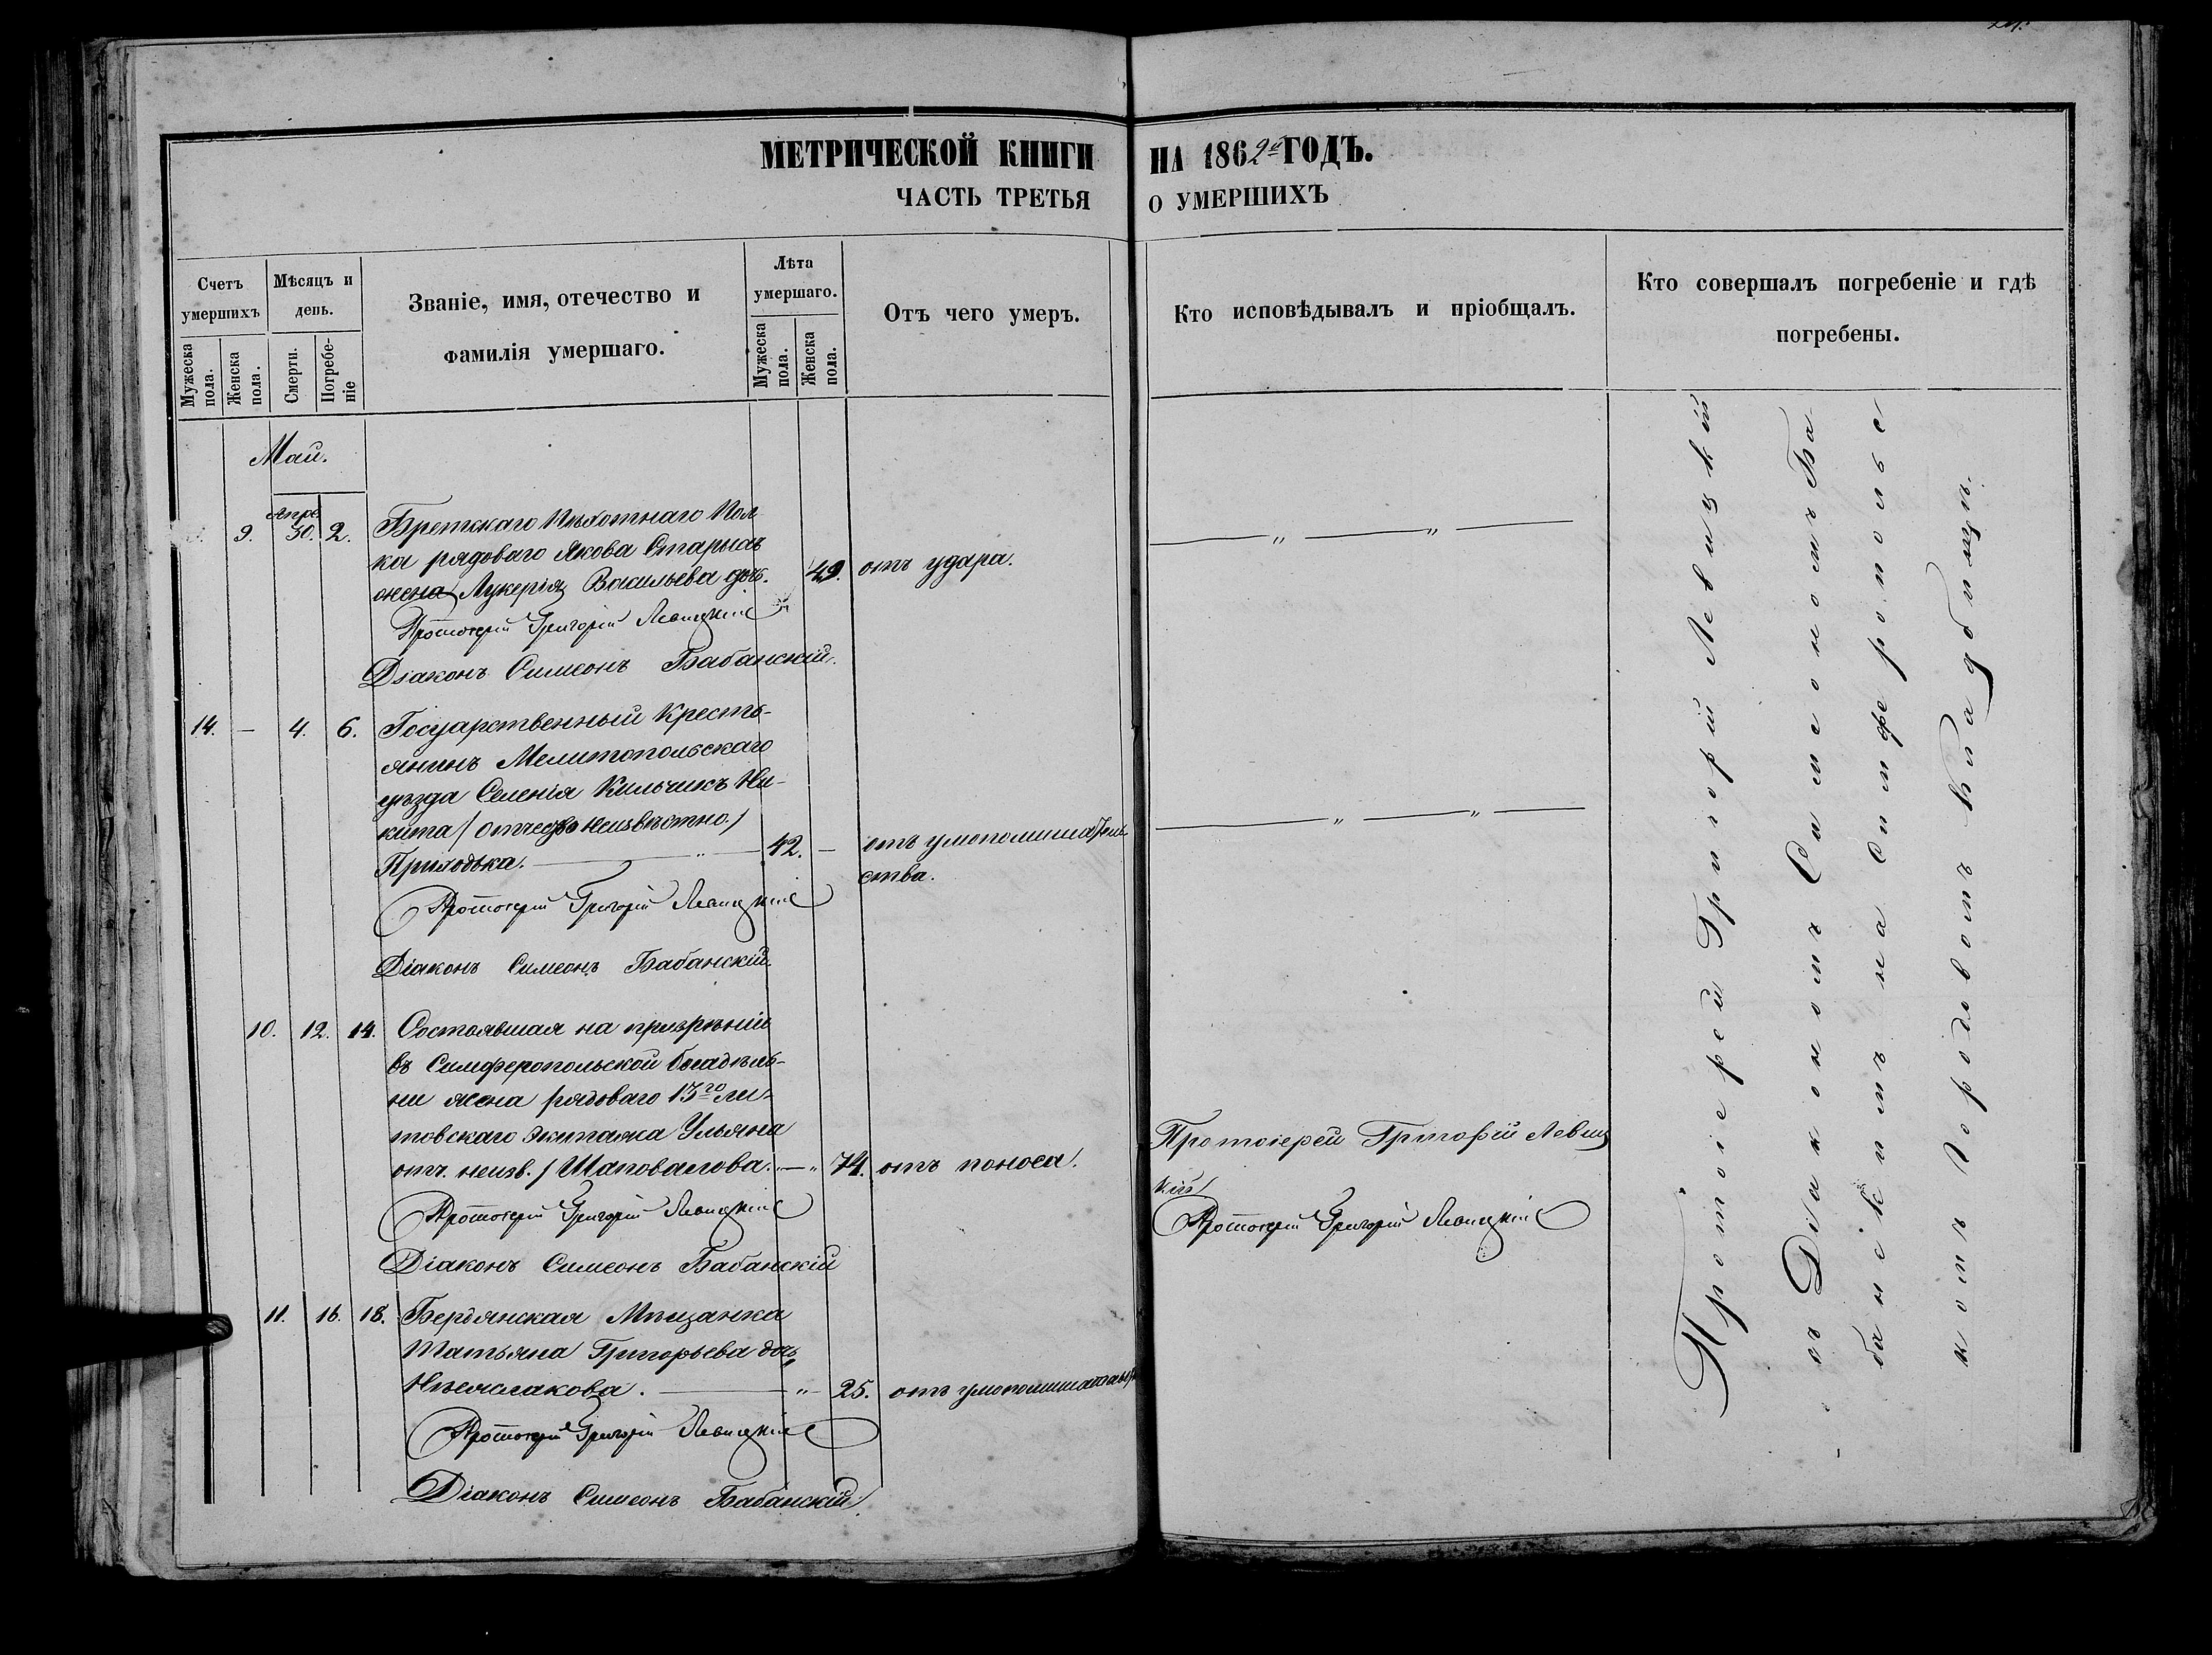 МЕТРИЧЕСКОЙ КНИГИ НА 1862й ГОДЪ.
ЧАСТЬ ТРЕТЬЯ О УМЕРШИХЪ
Счетъ умершихъ
Мужеска пола.
Женска пола.
Мѣсяцъ и день.
Смерти.
Погребеніе
Званіе, имя, отечество и
фамилія умершаго.
Лѣта умершаго.
Мужеска пола.
Женска пола.
Отъ чего умеръ.
Кто исповѣдывалъ и пріобщалъ.
Кто совершалъ погребеніе и гдѣ
погребены.
Май.
9. Апрѣ. 30. 2. Бретскаго Пѣхотнаго Пол-
ка рядоваго Якова
жена Лукерія Васильева 49. отъ удара.
Протоіерей Григорій Левицкій
Діаконъ Симеонъ Бабанскій.
14. — 4. 6. Госуарственный Кресть-
янинъ Мелитопольскаго
уѣзда Селенія Кильчикъ Ни-
кита / отчество неизвѣстно. /
Приходька. — „ — 42. — отъ умопомѣшатель-
ства.
Протоіерей Григорій Левицкій
Діаконъ Симеонъ Бабанскій.
10. 12. 14. Состоявшая на призрѣніи
въ Симферопольской богадѣль-
ни жена рядоваго 13го ли-
товскаго экипажа Ульяна
отч. неизв. / Шаповалова. „ — „ 74. отъ поноса.
Протоіерей Григорій Левиц
кій
Протоіерей Григорій Левицкій
Діаконъ Симеонъ Бабанскій
Протоіерей Григорій Левицкій
11. 16. 18. Бердянская Мѣщанка
Татьяна Григорьева дочь
— „ — 25. отъ
Протоіерей Григорій Левицкій
Діаконъ Симеонъ Бабанскій
Протоіерей Григорій Левицкій
съ Діакономъ Симеономъ Ба
банскимъ на Симферопольс
комъ Городовомъ Кладбищѣ.